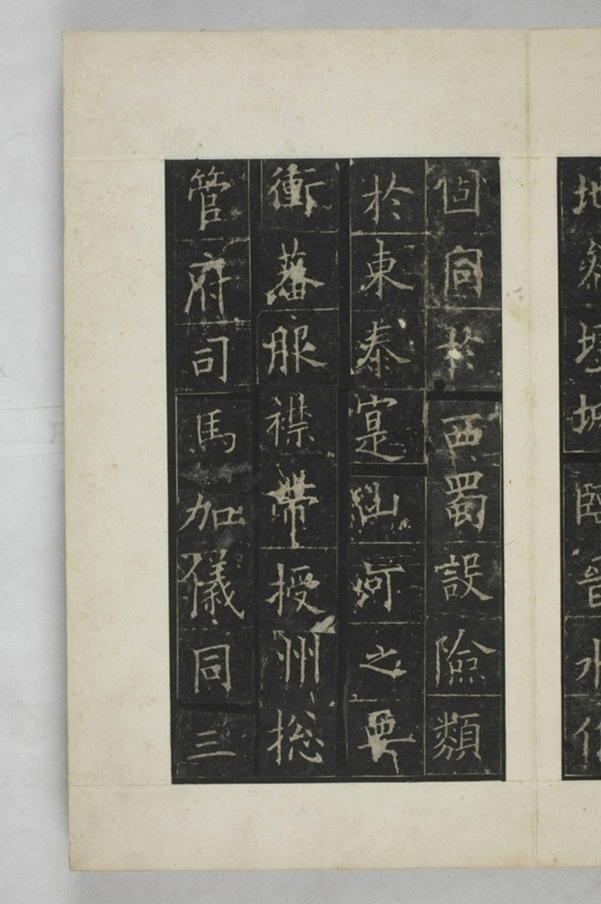 地壃城臨晉水
固同於西蜀設險類
於東秦寔山河之要
衝蕃服襟帶授州揔
管府司馬加儀同三